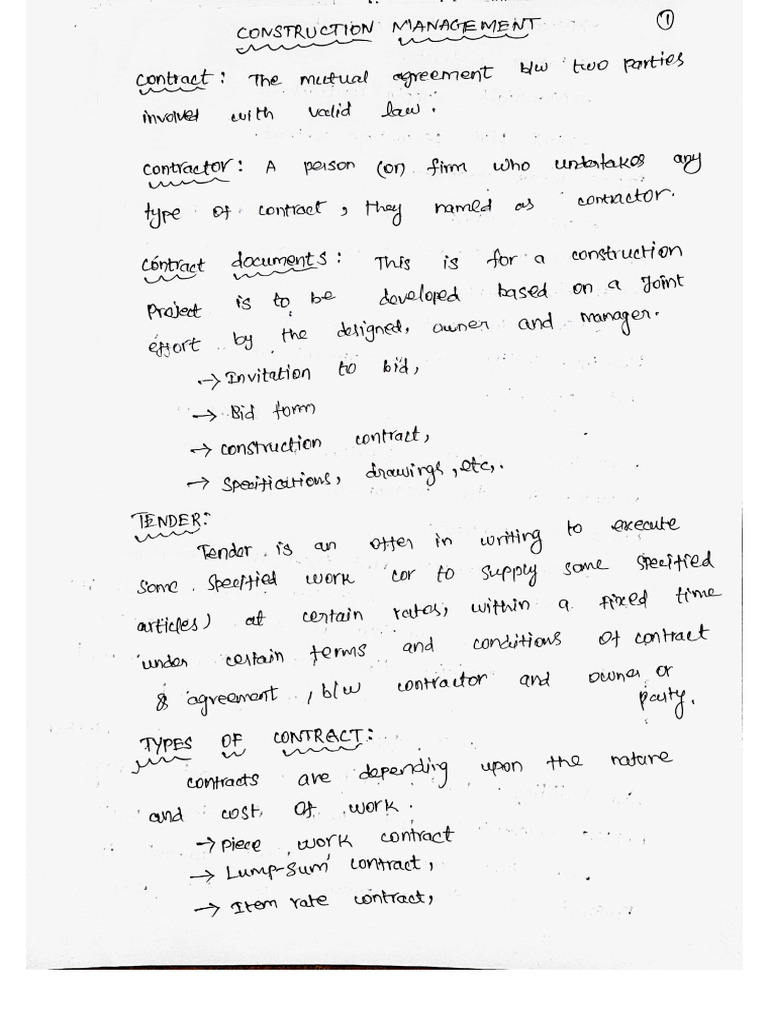 CONSTRUCTION MANAGEMENT
1
Contract: The mutual agreement b/w two parties
involved with valid law.
Contractor: A person (or) firm who undertakes any
type of contract, they named as contractor.
Contract documents: This is for a construction
Project is to be developed based on a Joint
effort by the designed, owner and manager.
→ Invitation to bid,
→ Bid form
→ construction contract,
→ Specifications, drawings, etc,.
TENDER:
Tender is an offer in writing to execute
some specified work (or to supply some specified
articles) at certain rates, within a fixed time
under certain terms and conditions of contract
& agreement, b/w contractor and owner or
party.
TYPES OF CONTRACT:
contracts are depending upon the nature
and cost of work.
→ piece work contract
→ Lump-sum contract,
→ Item rate contract,